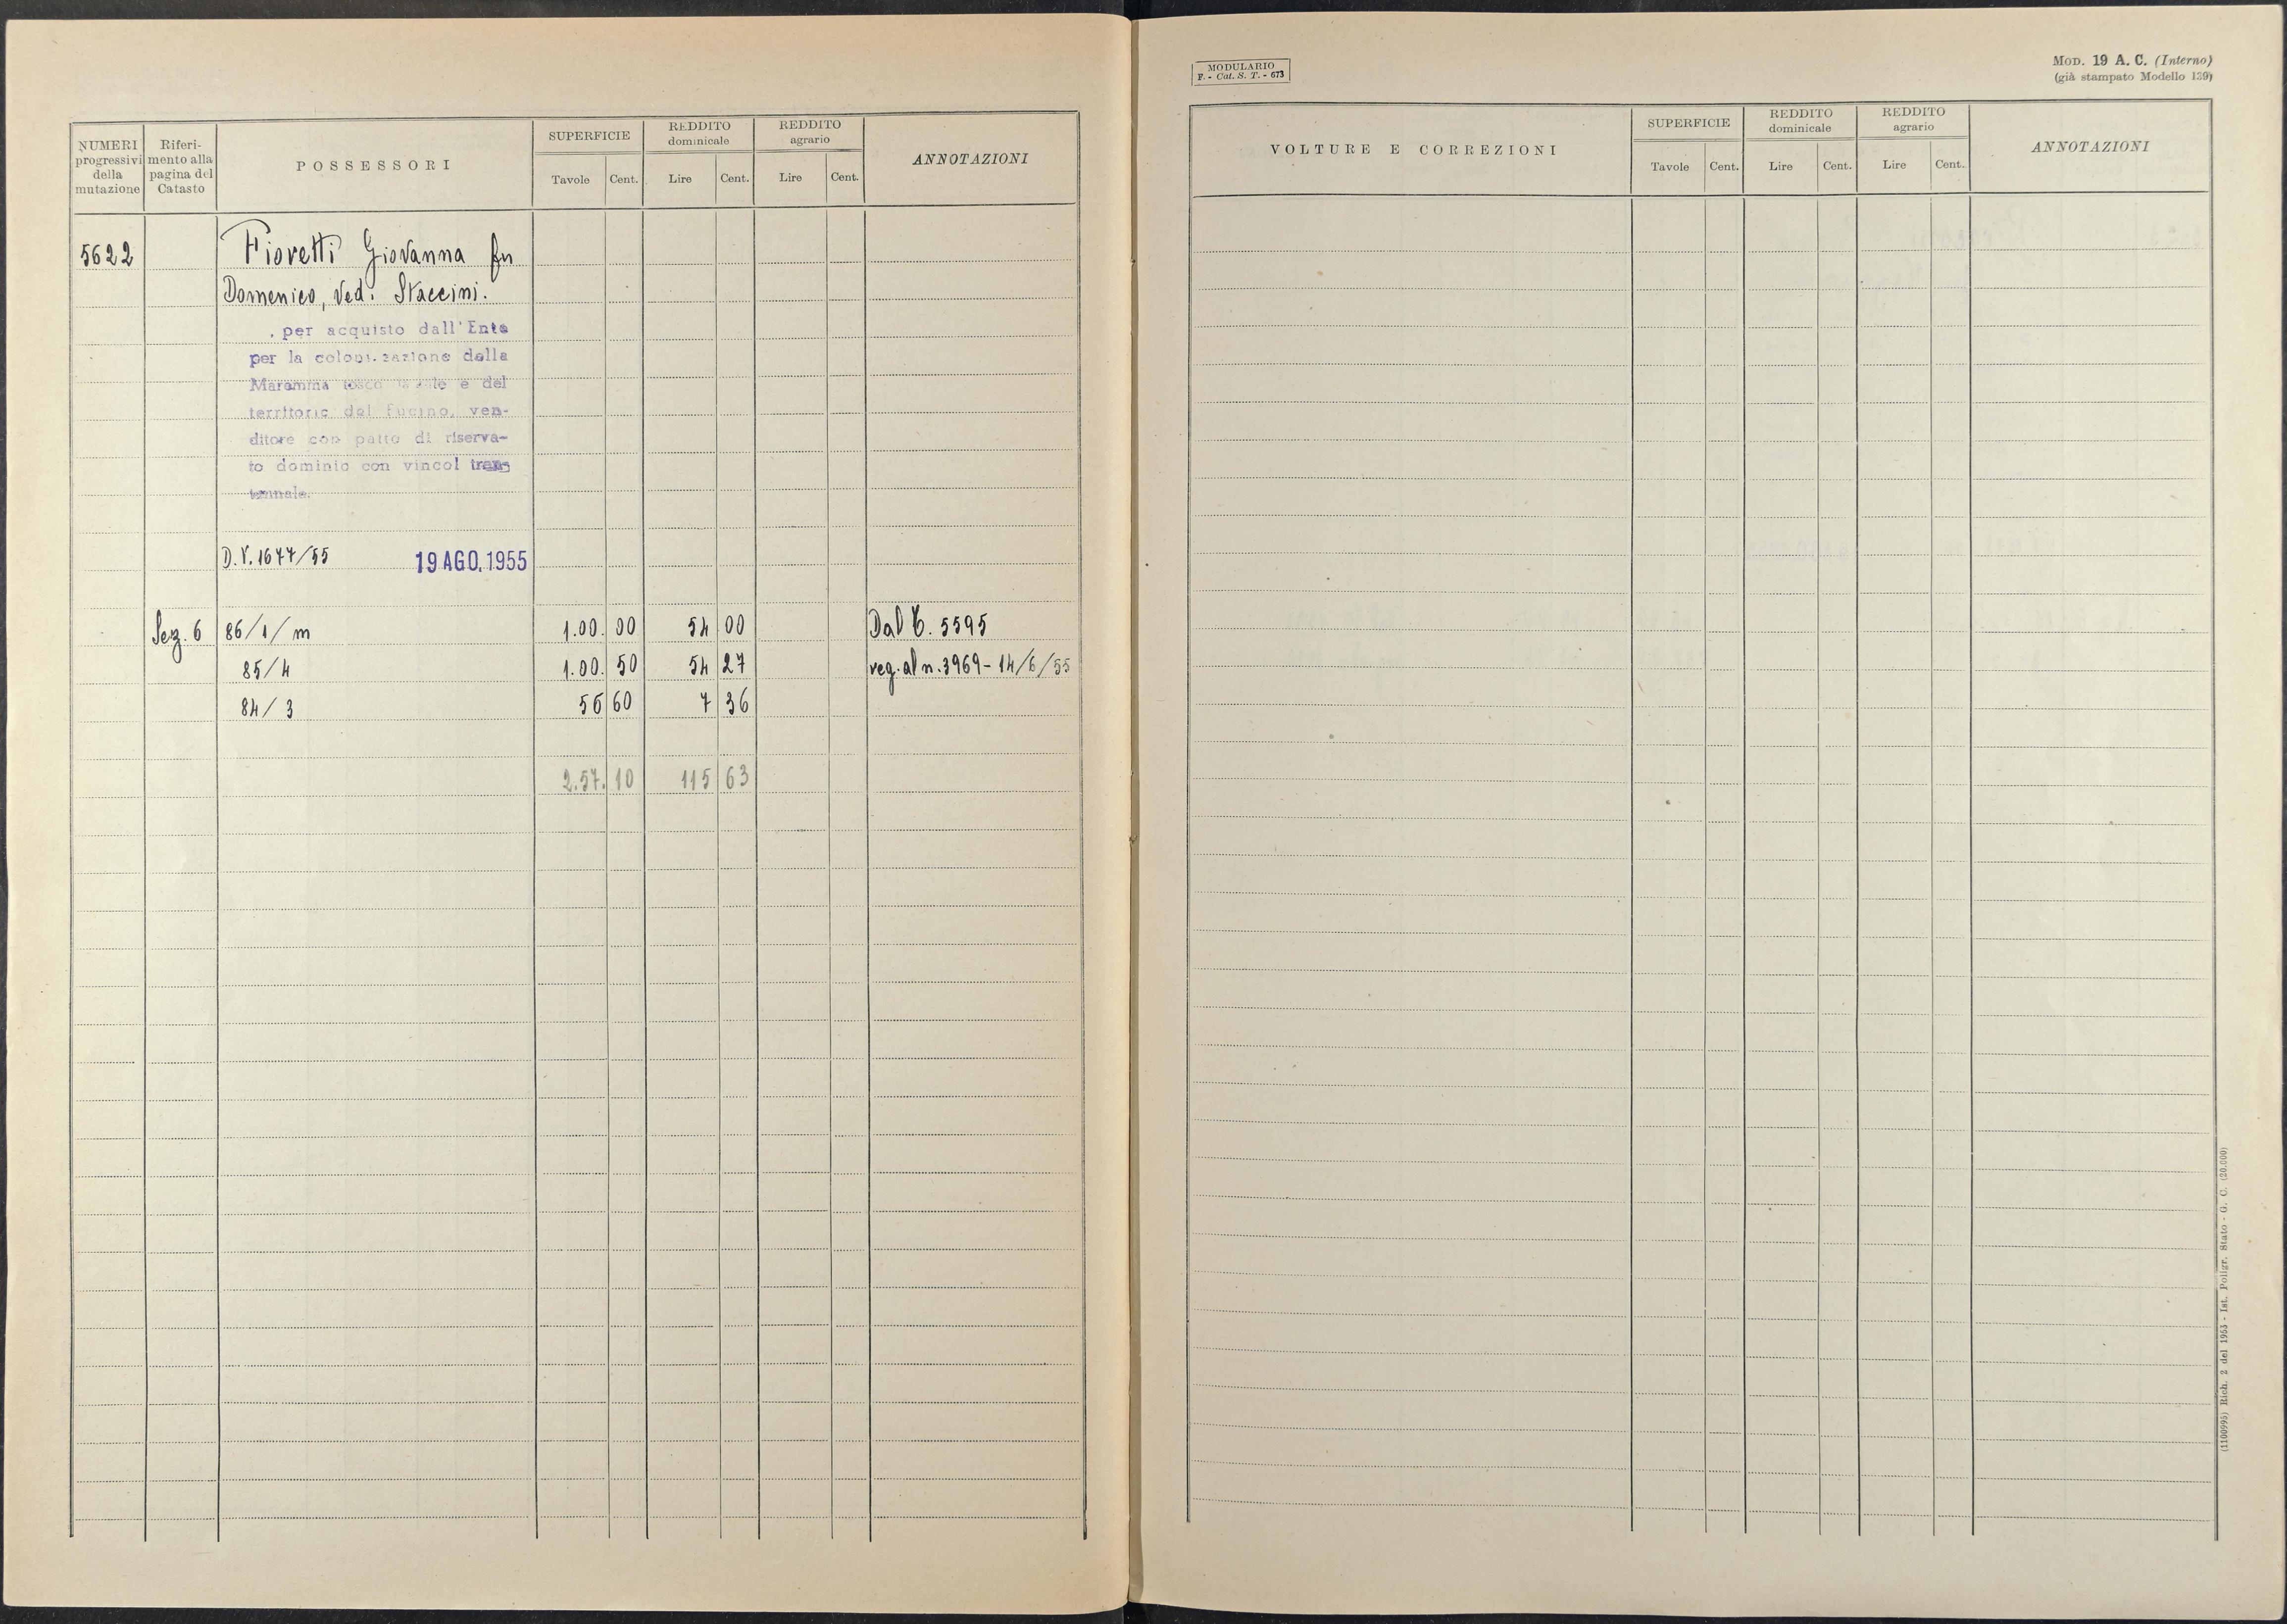 NUMERI
progressivi
della
mutazione
Riferi-
mento alla
pagina del
Catasto
POSSESSORI
SUPERFICIE
Tavole Cent.
REDDITO
dominicale
Lire Cent.
REDDITO
agrario
Lire Cent.
ANNOTAZIONI
5622 Fioretti Giovanna fu
Domenico, Ved. Staccini.
. per acquisto dall'Ente
per la colonizzazione della
Maremma tosco e del
territorio del Fucino, ven-
ditore con patto di riserva-
to dominio con vincol tren-
tennale.
D.V. 1677/55 19 AGO. 1955
Sez. 6 86/1/m 1.00.00 54 00 Dal C. 5595
85/4 1.00.50 54 27 reg. al n. 3969 - 14/6/55
84/3 56 60 7 36
2.57.10 115 63
MODULARIO
F. - Cat. S. T. - 673
MOD. 19 A. C. (Interno)
(già stampato Modello 139)
VOLTURE E CORREZIONI
SUPERFICIE
Tavole Cent.
REDDITO
dominicale
Lire Cent.
REDDITO
agrario
Lire Cent.
ANNOTAZIONI
(1100995) Rich. 2 del 1953 - Ist. Poligr. Stato - G. C. (20.000)